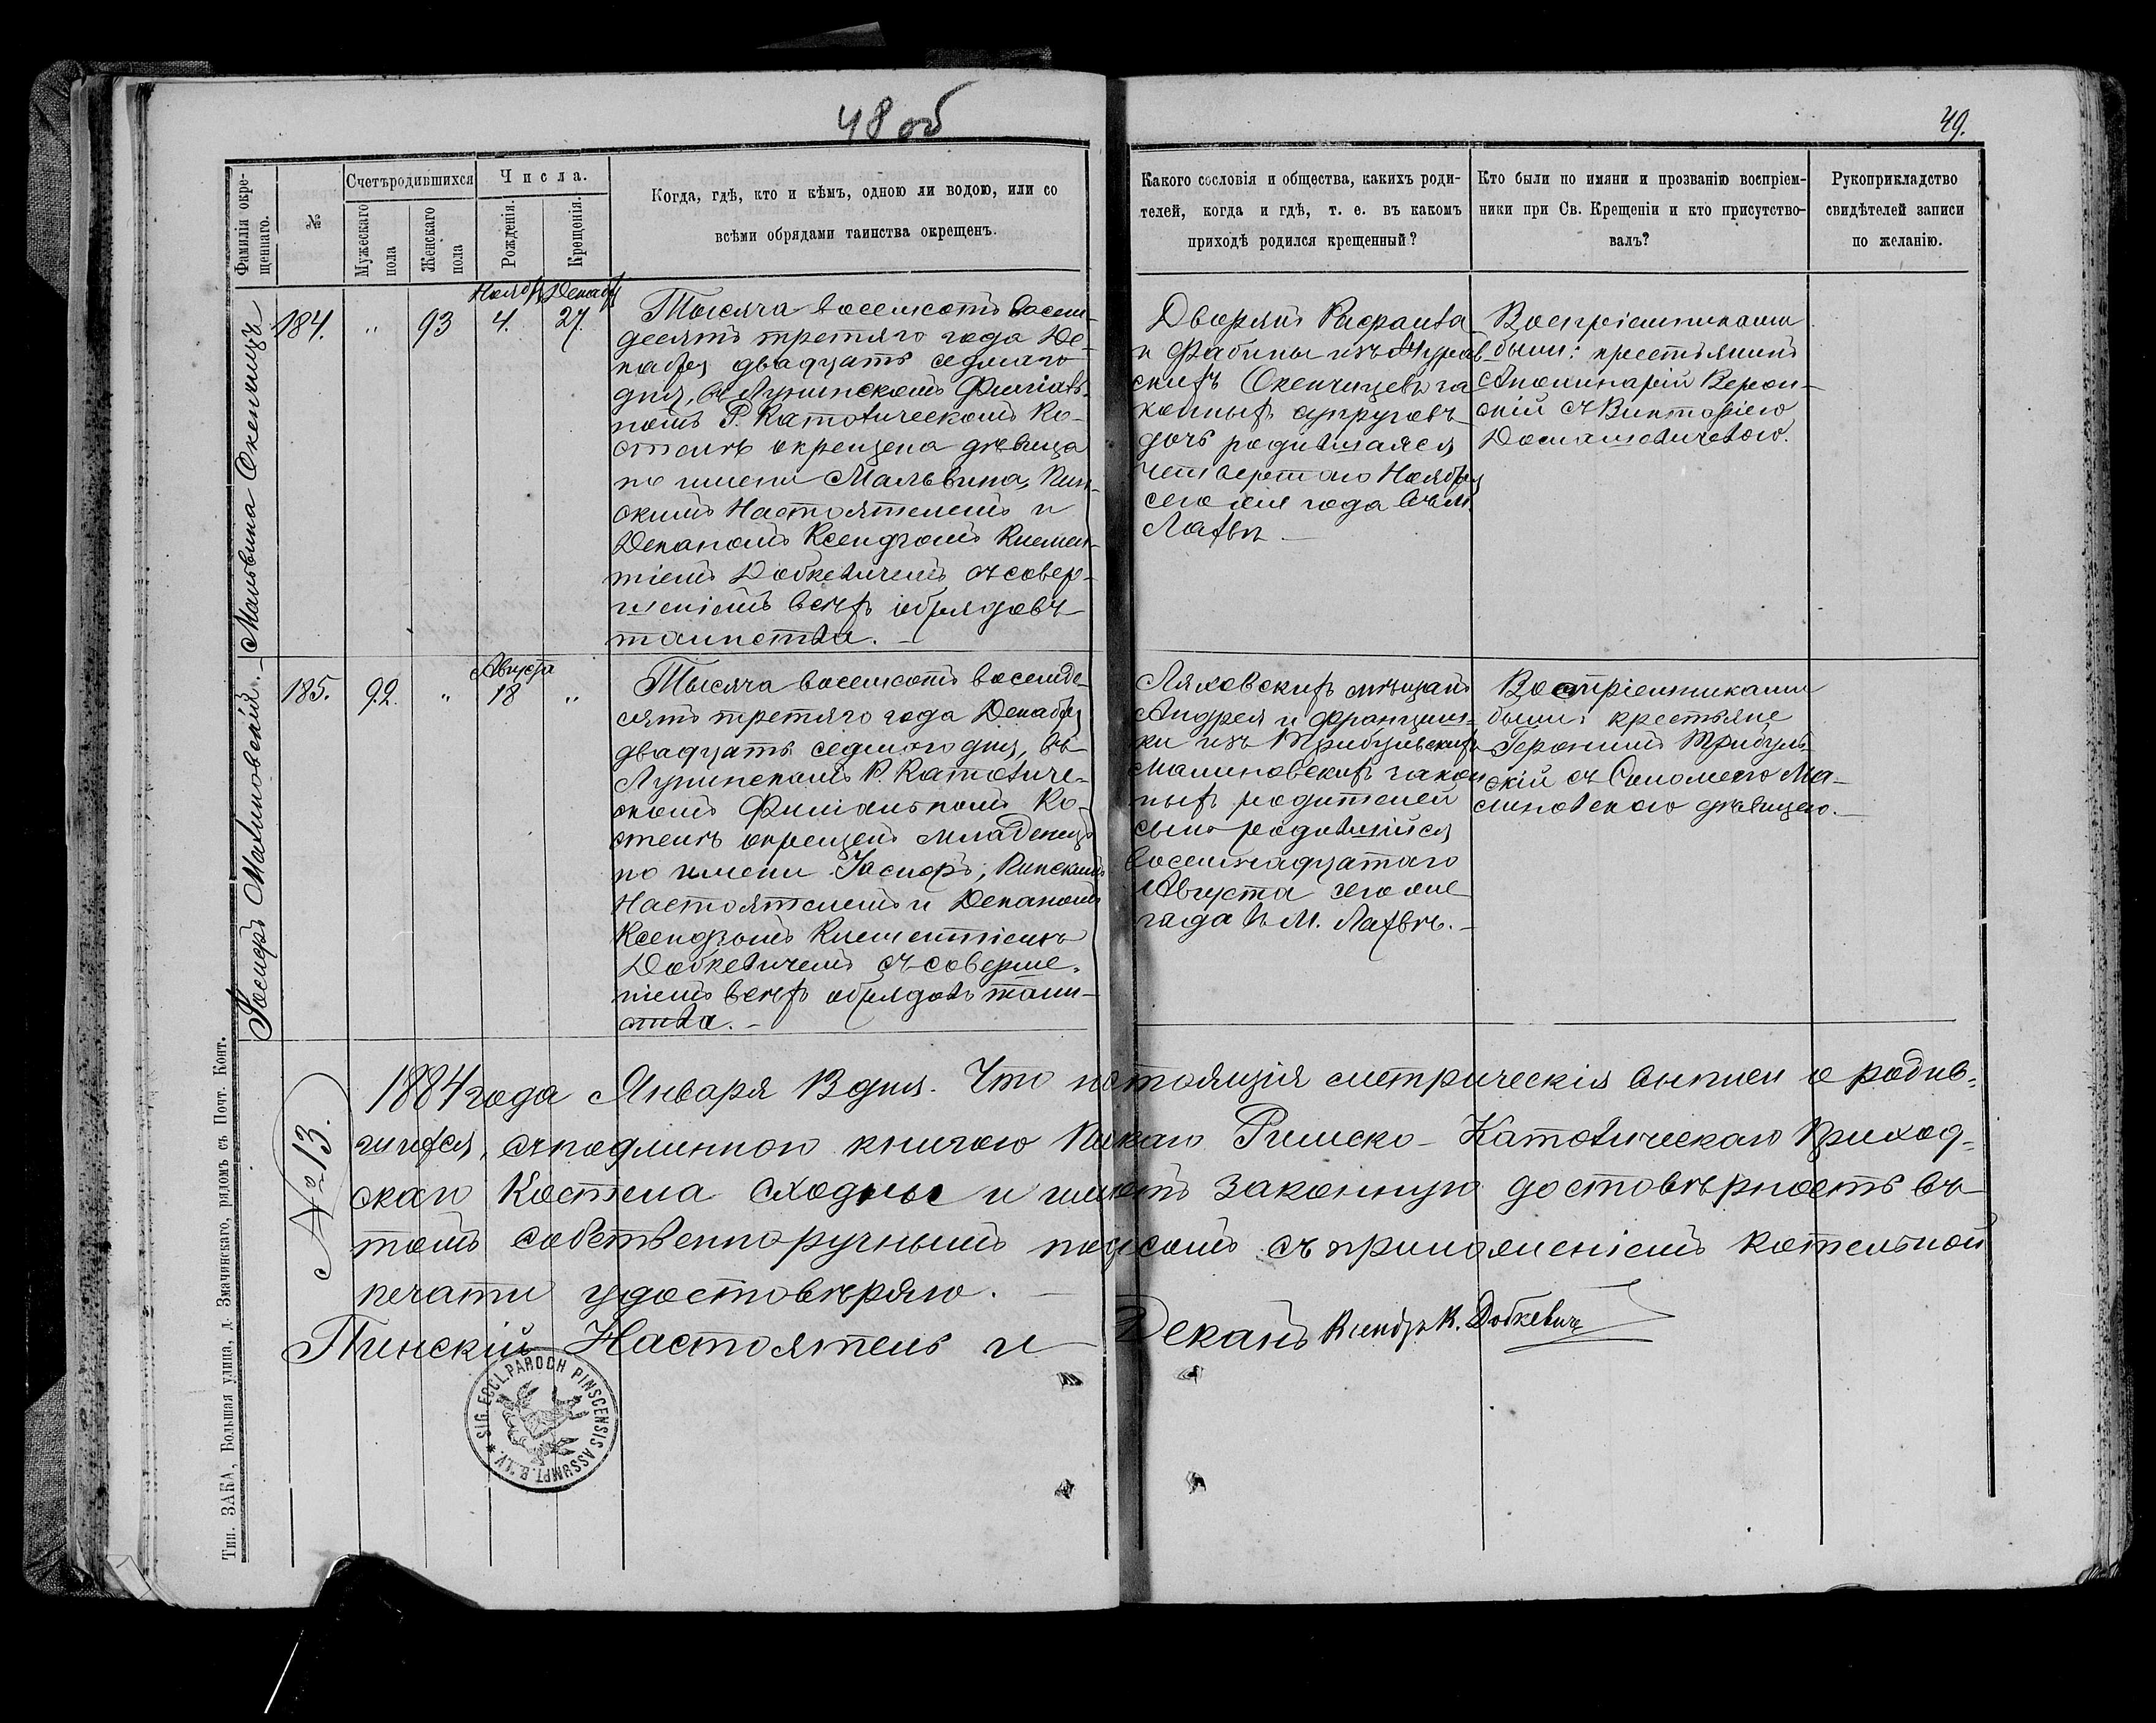 48 об
49.
Фамилія окре-
щеннаго.
№
Счетъ родившихся
Мужескаго
пола
Женскаго
пола
Числа.
Рожденія.
Крещенія.
Когда, гдѣ, кто и кѣмъ, одною ли водою, или со
всѣми обрядами таинства окрещенъ.
Какого сословія и общества, какихъ роди-
телей, когда и гдѣ, т. е. въ какомъ
приходѣ родился крещенный?
Кто были по имяни и прозванію воспріем-
ники при Св. Крещеніи и кто присутство-
валъ?
Рукоприкладство
свидѣтелей записи
по желанію.
Мальвина Окенчицъ
184.
"
93
Ноябр
4.
Декабр
27.
Тысяча восемсотъ восем-
десятъ третяго года Де-
кабря двадцать седмаго
дня, въ Лунинскомъ Филіаль-
номъ Р. Католическомъ Ко-
стелѣ окрещена дѣвица
по имени Мальвина, Пин-
скимъ Настоятелемъ и
Деканомъ Ксендзомъ Клемен-
тіемъ Добкевичемъ съ совер-
шеніемъ всѣхъ обрядовъ
таинства. —
Дворянъ
и Фабины изъ
Окенчицевъ за
конныхъ супруговъ
дочь родившаяся
четвертого Ноября
сего года въ м.
Лахвѣ —
Воспріемниками
были: крестьянинъ
Аполинарій
съ Викторіею
Домашевичевою.
Госифъ Малиновскій. —
185.
92.
"
Августа
18
"
Тысяча восемсотъ восемде-
сятъ третяго года Декабря
двадцать седмого дня, въ
Лунинскомъ Р. Католиче-
скомъ Филіальномъ Ко-
стелѣ окрещенъ младенецъ
по имени Іосифъ, Пинскимъ
Настоятелемъ и Деканомъ
Ксендзомъ Клементіемъ
Добкевичемъ съ соверше-
ніемъ всѣхъ обрядовъ таин-
ства. —
Ляховскихъ мѣщанъ
Андрея и Францишки
изъ Трибульскихъ
Малиновскихъ закон
ныхъ родителей
сынъ родившійся
восемнадцатаго
Августа сего же
года въ М. Лахвѣ. —
Воспріемниками
были: крестьяне
Геронимъ Трибуль-
скій съ Саломеею Ма-
линовскою дѣвицею. —
№ 213.
1884 года Января 13 дня. Что настоящія метрическія выписи о родив-
шихся, съ подлинною книгою Пинскаго Римско-Католическаго Приход-
скаго Костела сходны и имѣютъ законную достовѣрность въ
томъ собственноручнымъ подписомъ съ приложеніемъ костельной
печати удостовѣряю. —
Пинскій Настоятель и Деканъ Ксендзъ К. Добкевичъ
SIG. ECCL. PAROCH PINSCENSIS ASSUMPT. B.M.V.
Тип. ЗАКА, Большая улица, д. Змачинскаго, рядомъ съ Почт. Конт.